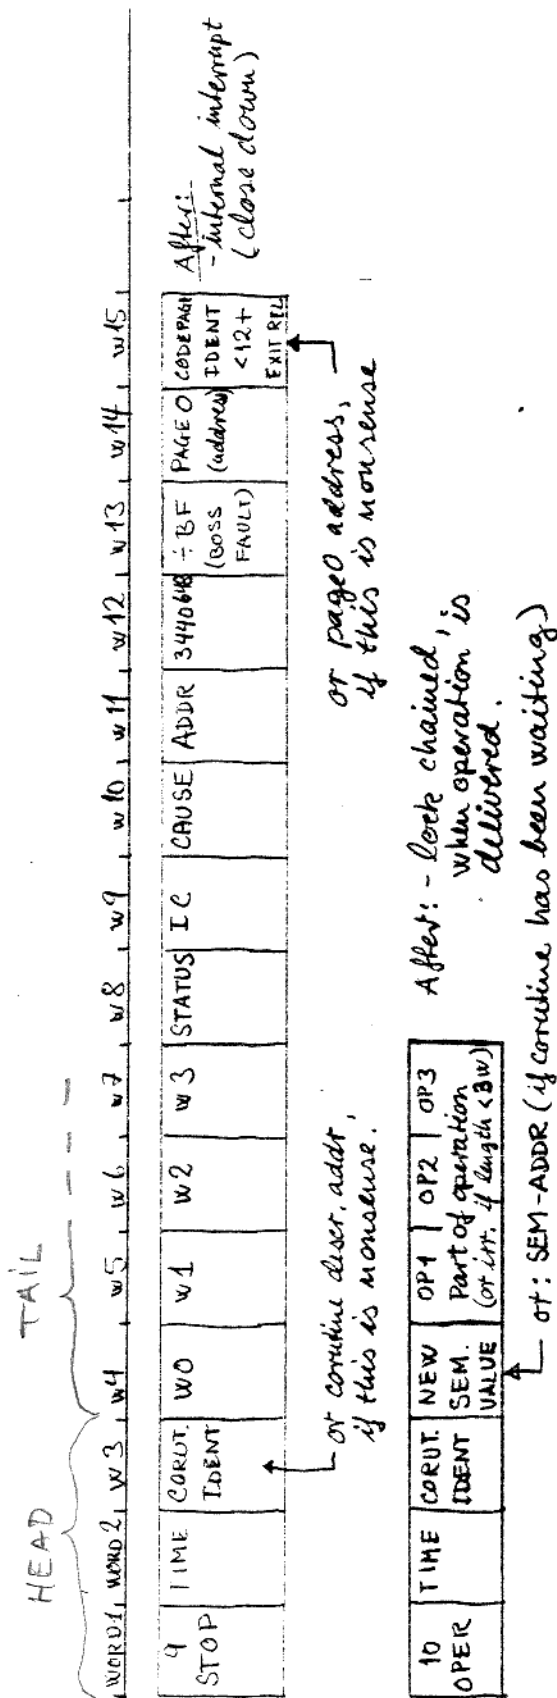 HEAD TAIL
WORD1 WORD2 W3 W4 W5 W6 W7 W8 W9 W10 W11 W12 W13 W14 W15
9 STOP
TIME
CORUT. IDENT
W0
W1
W2
W3
STATUS
IC
CAUSE
ADDR
3440640
÷BF (BOSS FAULT)
PAGE 0 (address)
CODEPAGE IDENT <12+ EXIT REL
After:
- internal interrupt
(close down)
or corutine descr. addr,
if this is nonsense.
or page0 address,
if this is nonsense
10 OPER
TIME
CORUT. IDENT
NEW SEM. VALUE
OP1 OP2 OP3
Part of operation
(or irr. if length <3w)
After: - lock chained,
when operation is
delivered.
or: SEM-ADDR (if corutine has been waiting)